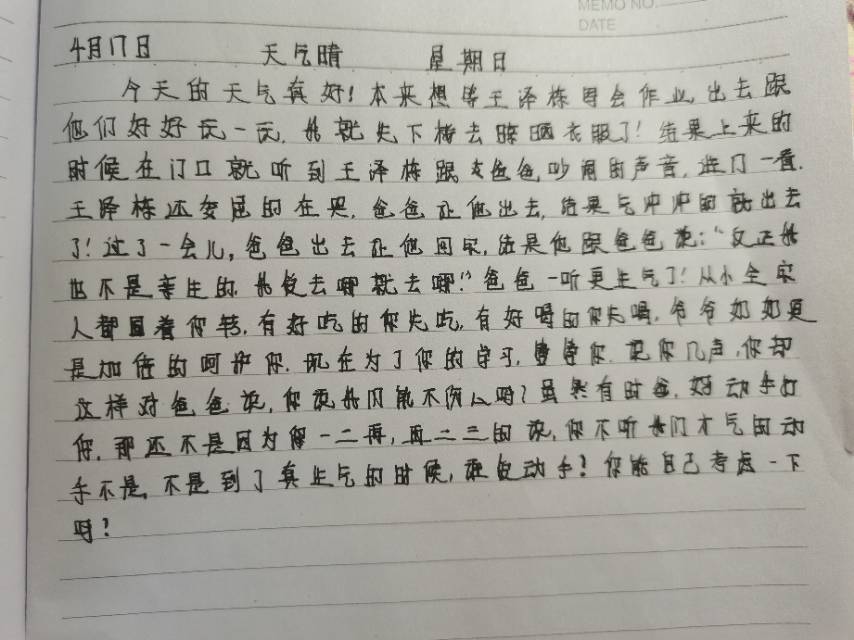 MEMO NO.
DATE
4月17日 天气晴 星期日
今天的天气真好！本来想等王泽栋写会作业，出去跟
他们好好玩一玩，我就先下楼去晾晒衣服了！结果上来的
时候在门口就听到王泽栋跟爸爸吵闹的声音，进门一看，
王泽栋还委屈的在哭，爸爸让他出去，结果气冲冲的就出去
了！过了一会儿，爸爸出去让他回家，结果他跟爸爸说：“反正我
也不是亲生的，我爱去哪就去哪！”爸爸一听更生气了！从小全家
人都围着你转，有好吃的你先吃，有好喝的你先喝，爷爷奶奶更
是加倍的呵护你，现在为了你的学习，管管你，说你几声，你却
这样对爸爸说，你说我们能不伤心吗？虽然有时爸，妈动手打
你，那还不是因为你一二再，再二三的说，你不听我们才气的动
手不是，不是到了真生气的时候，谁爱动手？你能自己考虑一下
吗？